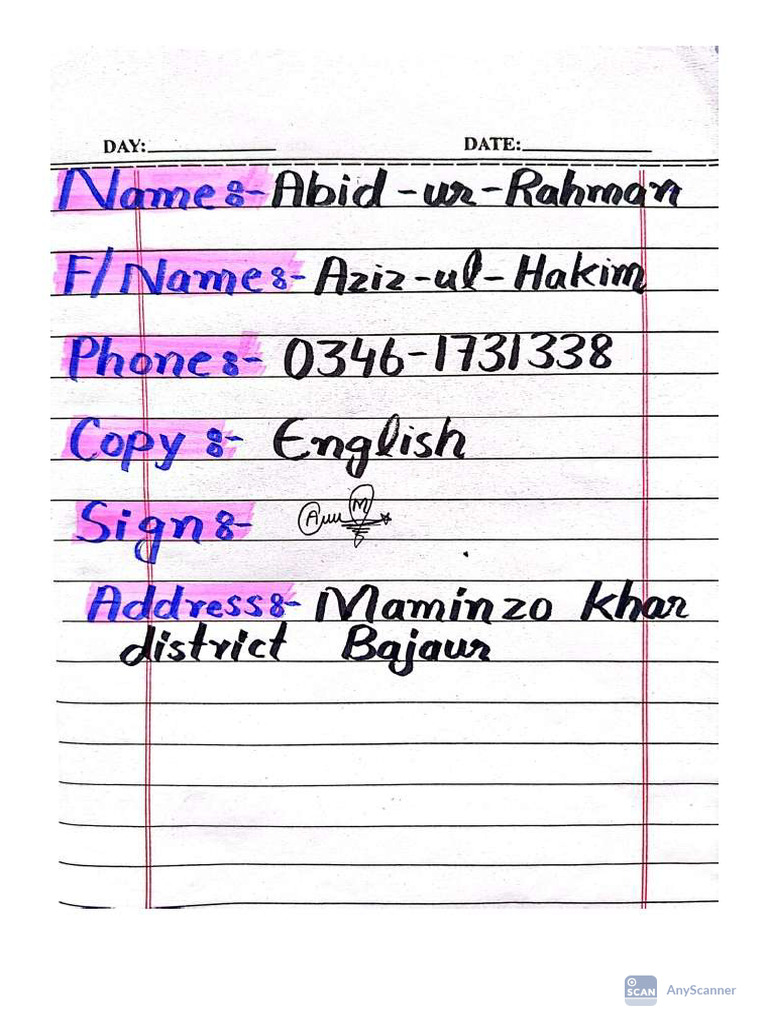 DAY: DATE:
Name:- Abid-ur-Rahman
F/Name:- Aziz-ul-Hakim
Phone:- 0346-1731338
Copy:- English
Sign:-
Address:- Maminzo khar
district Bajaur
SCAN AnyScanner